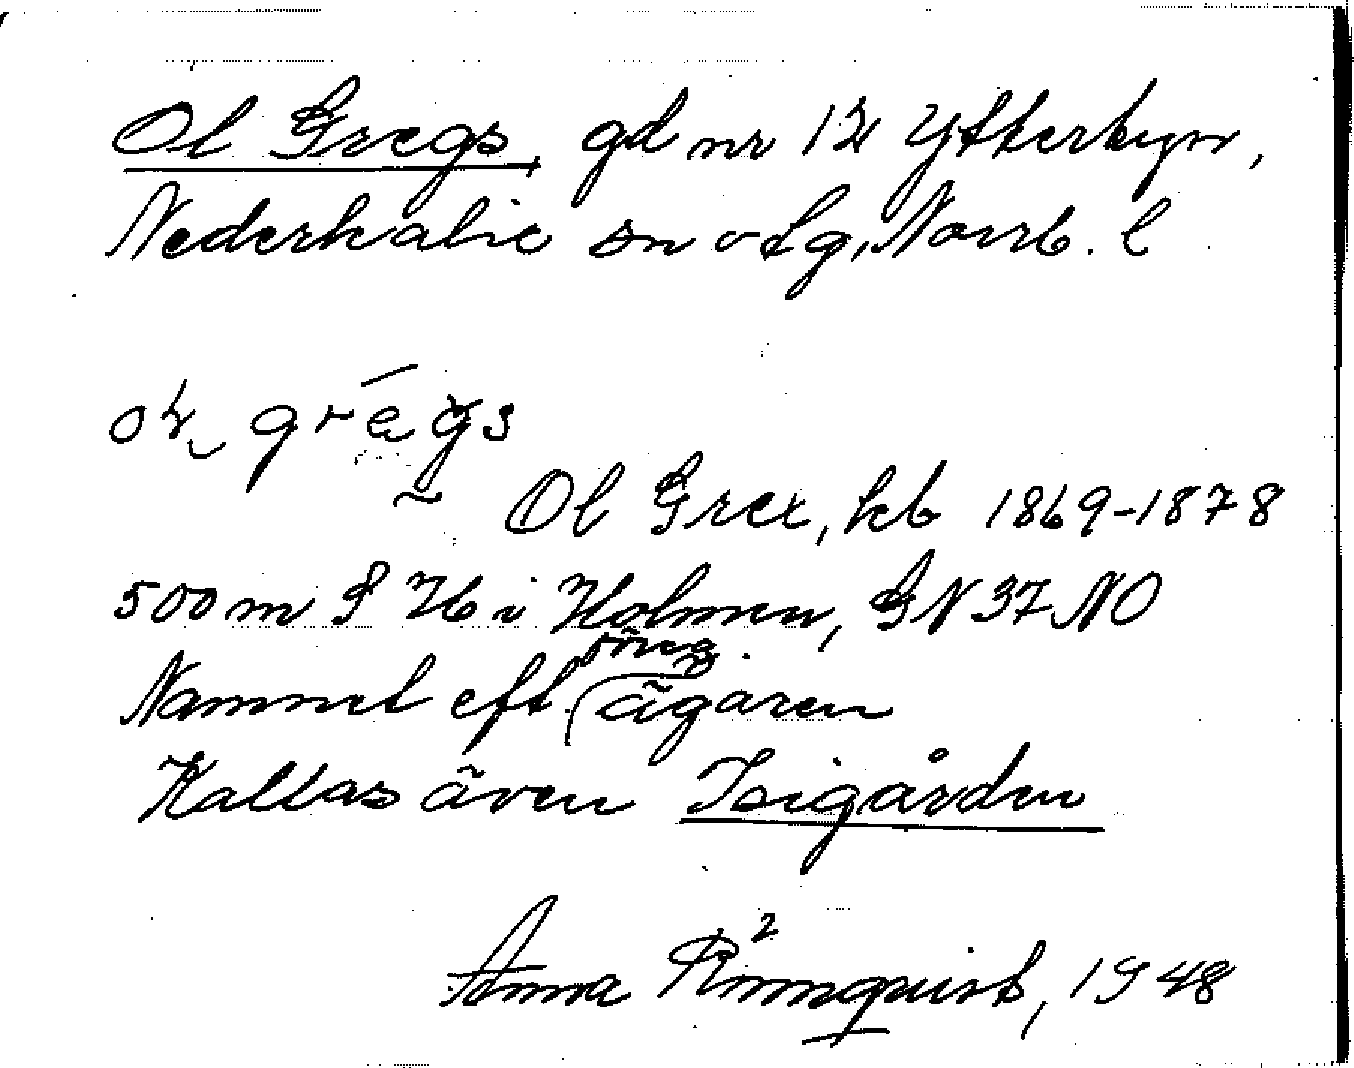 Ol Gregs, gd nr 12 Ytterbyn,
Nederkalix sn o fg, Norrb. l
Ol Grex, kb 1869-1878
500 m S H i Holmen, GN 37 NO
Namnet eft. föreg. ägaren
Kallas även Isigården
Anna Rönnquist, 1948